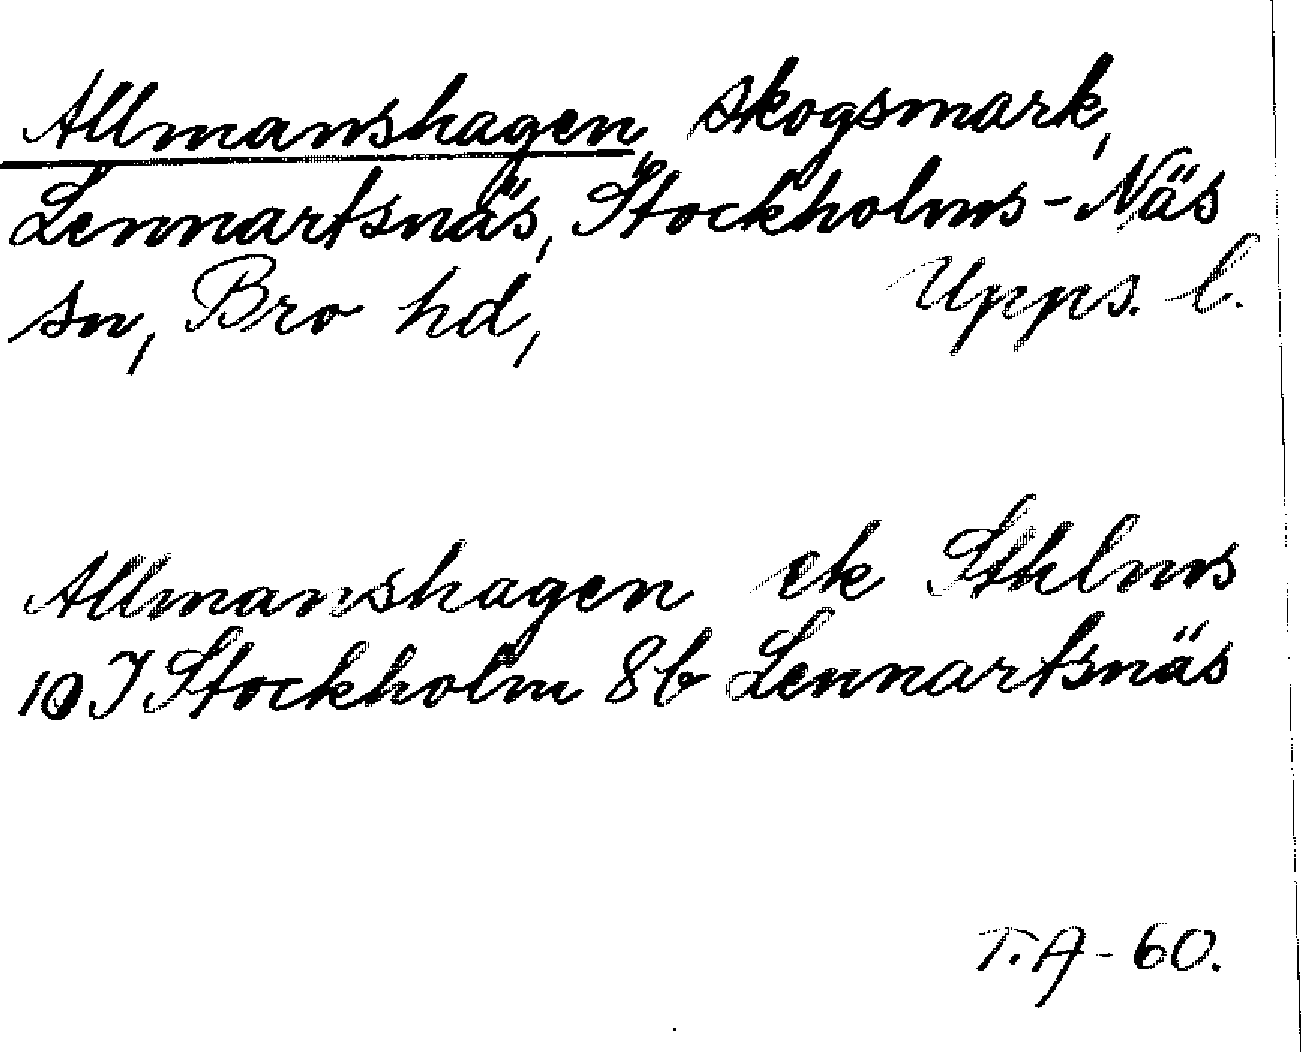 Allmanshagen, skogsmark,
Lennartsnäs, Stockholms-Näs
sn, Bro hd, Upps. l.
Allmanshagen ek Sthlms
10 I Stockholm 8b Lennartsnäs
T.A-60.